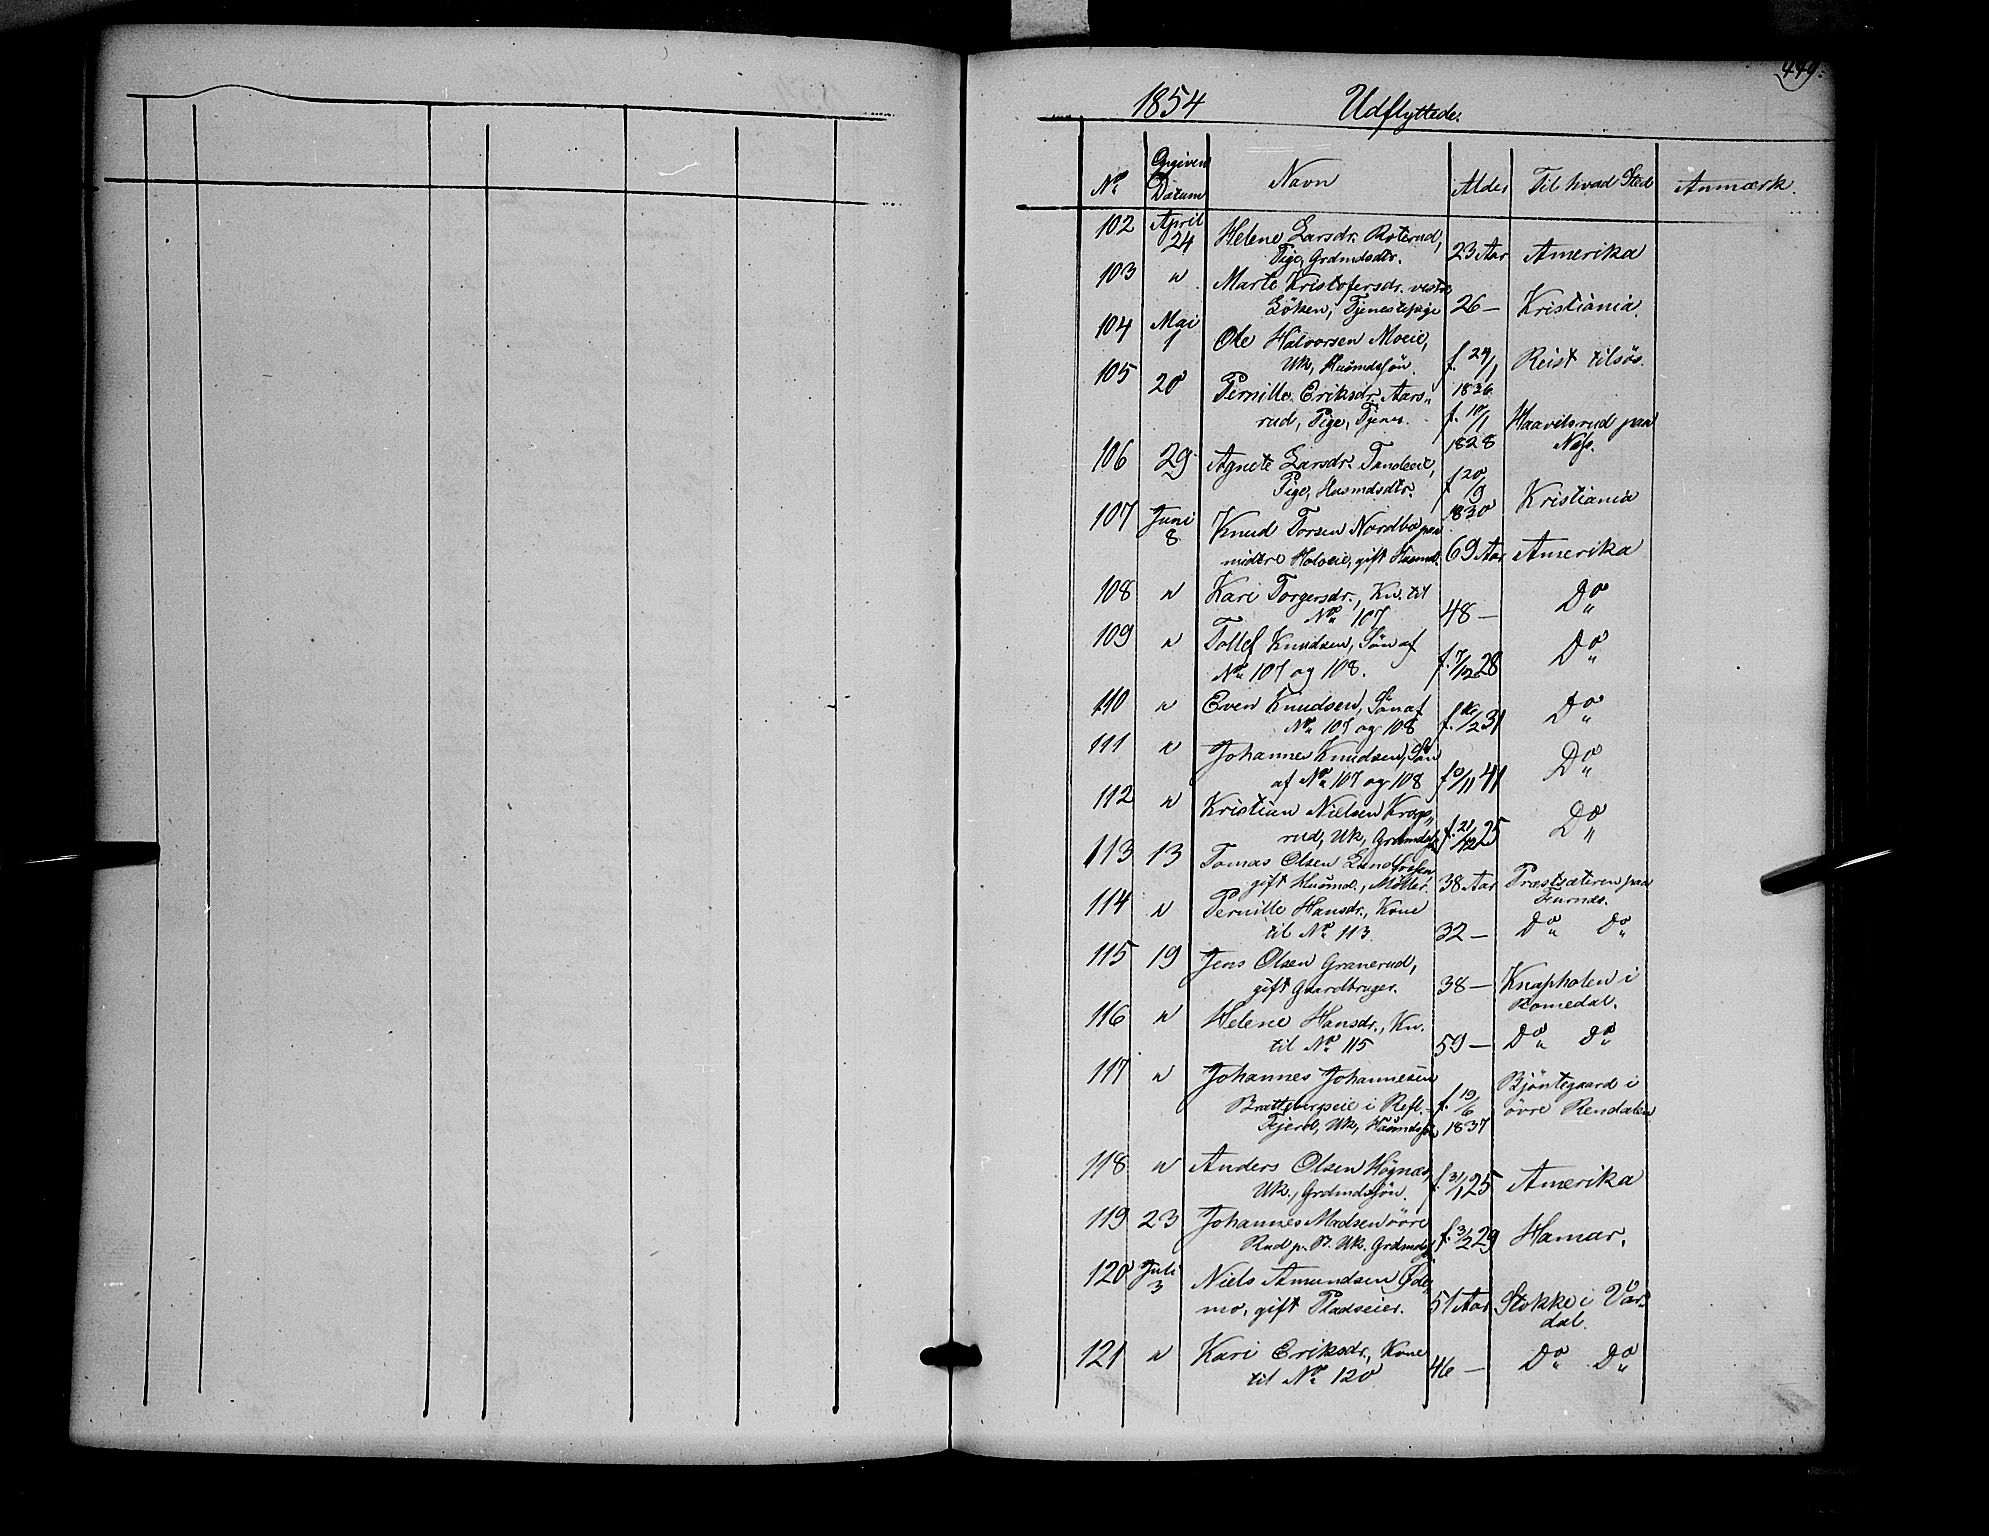 449.
1854 Udflyttede.
No Opgiven Datum Navn Alder Til hvad Sted Anmærk.
102 April 24 Helene Larsdr. Roterud, 23 Aar Amerika
Pige, Grdmdsdtr.
103 " Marte Kristofersdr. vestre 26 — Kristiania.
Löken, Tjenestepige
104 Mai 1 Ole Halvorsen Moeie, f. 24/1 1836 Reist tilsös.
Uk, Husmdssön.
105 20 Pernille Eriksdr. Aars- f. 10/1 1828 Haavelsrud paa
rud, Pige, Tjenes. Næs.
106 29 Agnete Larsdr. f 20/9 1830 Kristiania
Pige, Husmdsdtr.
107 Juni 8 Knud Torsen Nordbo paa 69 Aar Amerika
midtre Holoeie, gift Husmd.
108 " Kari Torgersdr., Kn. til 48 — Do
No 107
109 " Tollef Knudsen, Sön af f. 7/12 28 Do
No 107 og 108.
110 " Even Knudsen, Sön af 31 Do
No 107 og 108
111 " Johannes Knudsen, Sön 41 Do
af No 107 og 108
112 " Kristian Nielsen Krags- f. 21/12 25 Do
rud, Uk, Grdmdss.
113 13 Tomas Olsen 38 Aar Præstsæteren paa
gift Husmd., Möller. Furnæs.
114 " Pernille Hansdr., Kone 32 — Do Do
til No 113.
115 19 Jens Olsen Granerud, 38 — Knapholen i
gift Gaardbruger. Romedal.
116 " Helene Hansdr., Kn. 59 — Do do
til No 115
117 " Johannes Johannesen f. 19/6 1837 Bjöntegaard i
Brattebergseie i Refl.- övre Rendalen
Fjerd, Uk, Husmdss.
118 " Anders Olsen Högnæs, f. 31/1 25 Amerika
Uk., Grdmdssön.
119 23 Johannes Madsen övre f. 3/2 29 Hamar.
Rud p. Uk. Grdmdss.
120 Juli 3 Niels Amundsen Öde- 51 Aar Stokke i Var-
mo, gift Pladseier. dal.
121 " Kari Eriksdr., Kone 46 — Do Do
til No 120